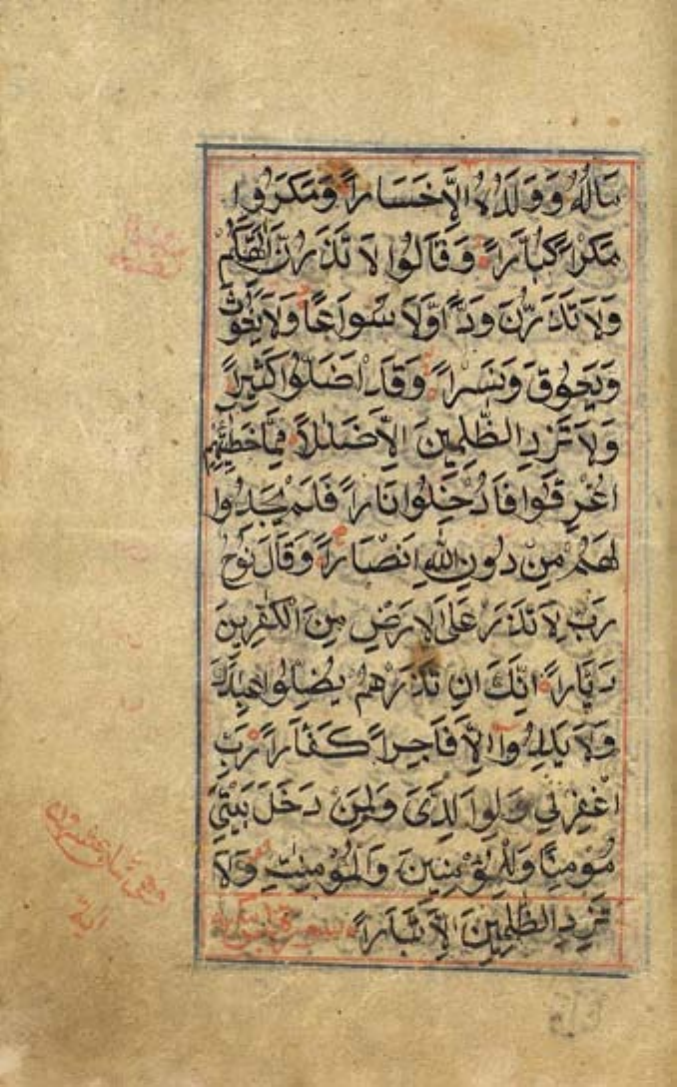 مَالُهُ وَوَلَدُهُ اِلَّاخَسَاراً وَمَكَرُوا
مَكْراً كُبَّاراً وَقَالُوا لَا تَذَرُنَّ اٰلِهَتَكُمْ
وَلَا تَذَرُنَّ وَدًّا وَلَا سُوَاعًا وَلَا يَغُوثَ
وَيَعُوقَ وَنَسْراً وَقَدْ اَضَلُّوا كَثِيراً
وَلَا تَزِدِ الظّٰلِمِينَ اِلَّا ضَلٰلاً مِمَّا خَطِيئٰتِهِمْ
اُغْرِقُوا فَاُدْخِلُوا نَاراً فَلَمْ يَجِدُوا
لَهُمْ مِنْ دُونِ اللّٰهِ اَنْصَاراً وَقَالَ نُوحٌ
رَبِّ لَا تَذَرْ عَلَى الْاَرْضِ مِنَ الْكٰفِرِينَ
دَيَّاراً اِنَّكَ اِنْ تَذَرْهُمْ يُضِلُّوا عِبَادَكَ
وَلَا يَلِدُوا اِلَّا فَاجِراً كَفَّاراً رَبِّ
اغْفِرْلِي وَلِوَالِدَيَّ وَلِمَنْ دَخَلَ بَيْتِيَ
مُؤْمِنًا وَلِلْمُؤْمِنِينَ وَالْمُؤْمِنٰتِ وَلَا
تَزِدِ الظّٰلِمِينَ اِلَّا تَبَاراً
وهي ثمان وعشرون
اية